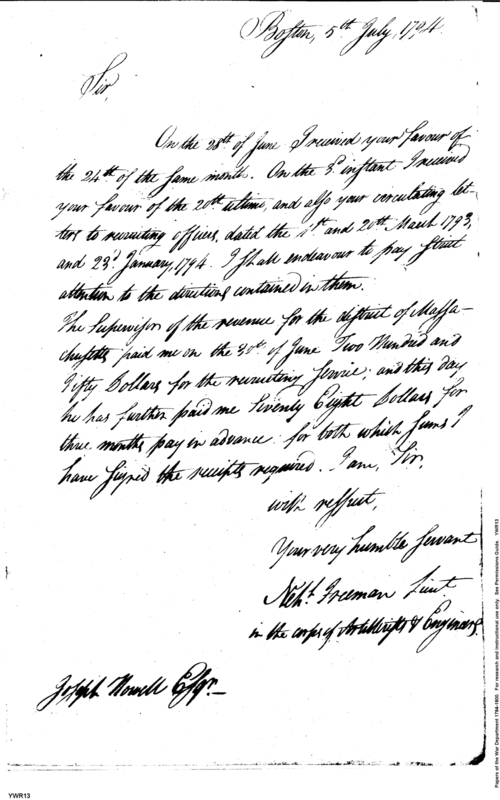 Boston, 5th July, 1794.
Sir,
On the 28th of June I received your favour of
the 24th of the same month. On the 3d instant I received
your favour of the 20th ultimo, and also your circulating let-
ters to recruiting officers, dated the 1st and 20th March 1793,
and 23d January, 1794. I shall endeavour to pay strict
attention to the directions contained in them.
The Supervisor of the revenue for the district of Massa-
chusetts paid me on the 30th of June Two Hundred and
Fifty Dollars for the recruiting service; and this day
he has further paid me Seventy Eight Dollars for
three months pay in advance: for both which sums I
have signed the receipts required. I am, Sir,
with respect,
Your very humble Servant
Neht. Freeman Lieut
in the corps of Artillerists & Engineers
Joseph Howell Esqr.
YWR13
Papers of the War Department 1784-1800. For research and instructional use only. See Permissions Guide. YWR13